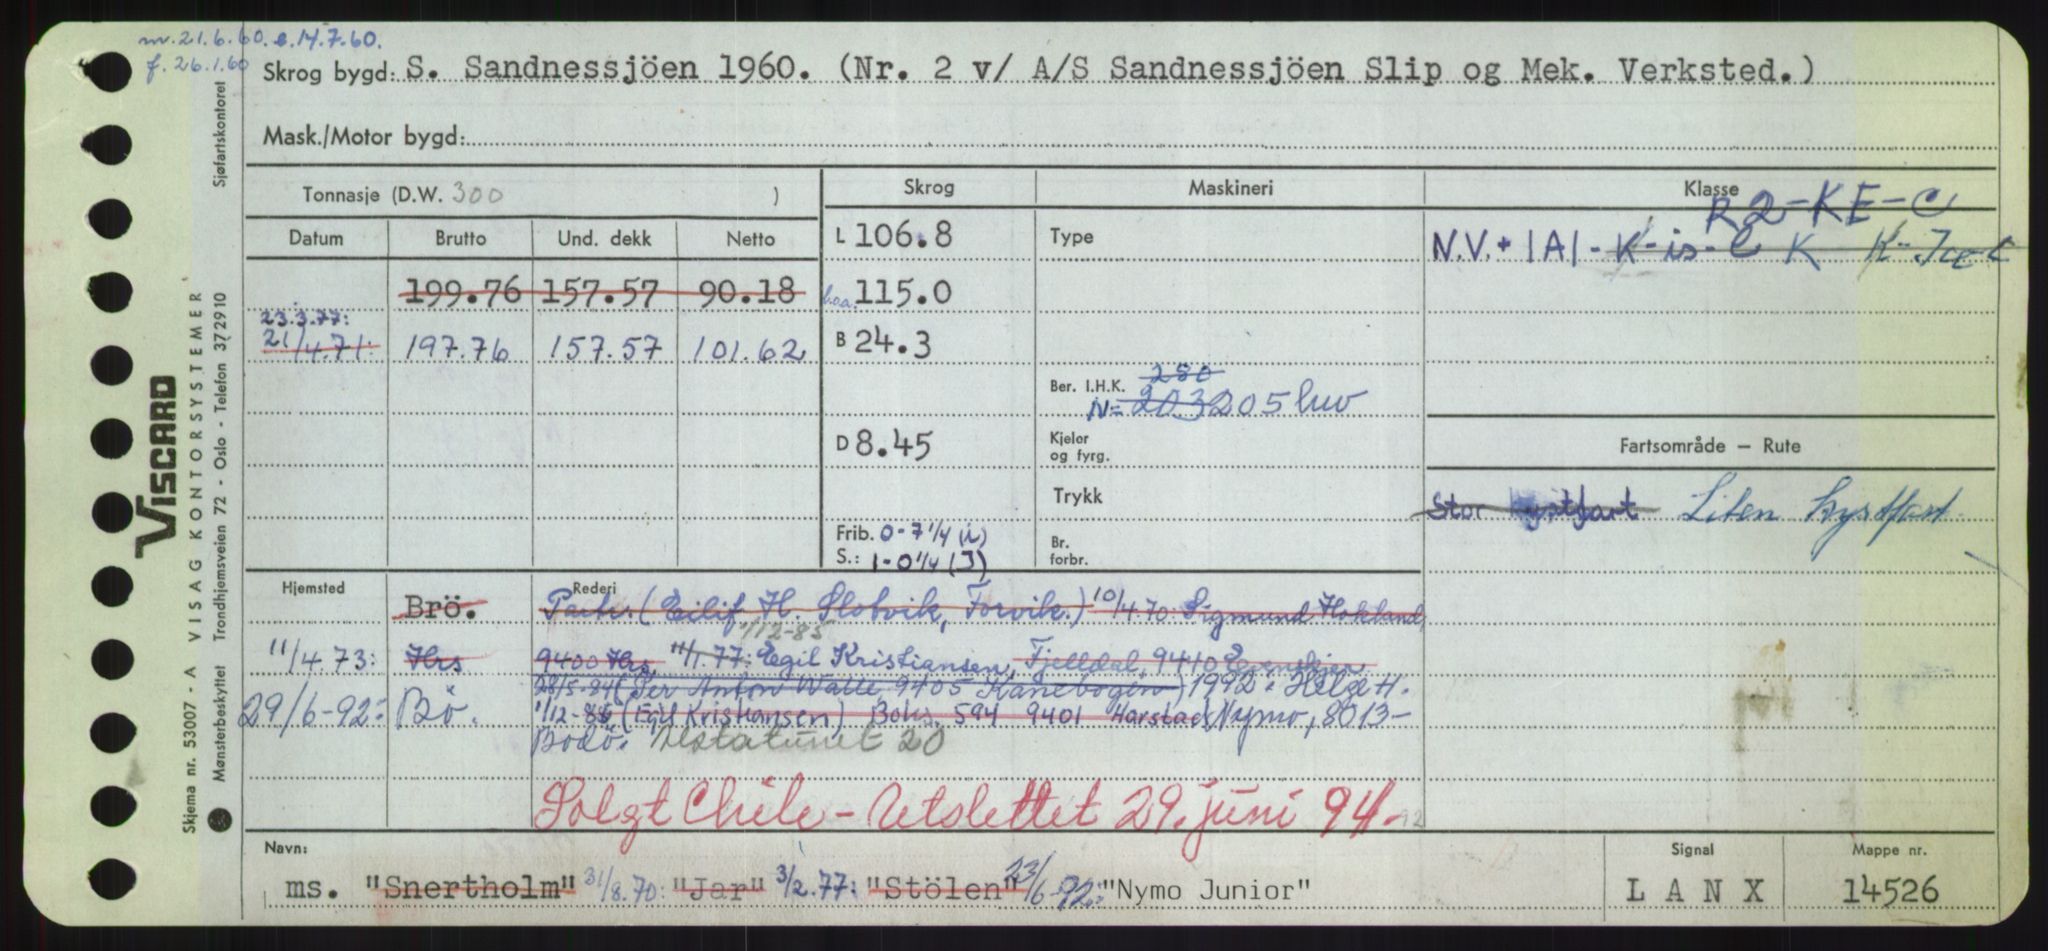 m.21.6.60. e.14.7.60.
f. 26.1.60
Skrog bygd: S. Sandnessjöen 1960. (Nr. 2 v/ A/S Sandnessjöen Slip og Mek. Verksted.)
Mask./Motor bygd:
Tonnasje (D.W. 300 )
Datum Brutto Und. dekk Netto
199.76 157.57 90.18
23.3.77:
21/4.71: 197.76 157.57 101.62
Skrog
L 106.8
l.o.a. 115.0
B 24.3
D 8.45
Frib. 0-7 1/4 (i)
S.: 1-0 1/4 (J)
Maskineri
Type
Ber. I.H.K. 280
N= 203 205 luv
Kjeler
og fyrg.
Trykk
Br.
forbr.
Klasse
R2-KE-C
N.V.+ 1A1 - K-is-C K K-Ice-C
Fartsområde – Rute
Stor kystfart Liten kystfart
Hjemsted Rederi
Brö. Partr. (Eilif H. Slotvik, Forvik.) 10/4.70: Sigmund Hokland,
1/12-85
11/4.73: Hrs 9400 Hrs 11/1.77: Egil Kristiansen, Fjelldal, 9410 Evenskjer
28/5-84 (Per Anton Walle, 9405 Kanebogen) 1992: Helge H.
29/6-92: Bö. 1/12-85 (Egil Kristiansen) Boks 594 9401 Harstad Nymo, 8013-
Bodö. Alstatunet 20
Solgt Chile - Utslettet 29. juni 94-92
Navn:
ms. "Snertholm" 31/8.70: "Jar" 3/2.77: "Stölen" 23/6-92: "Nymo Junior"
Signal
L A N X
Mappe nr.
14526
VISCARD
Skjema nr. 53007 - A VISAG KONTORSYSTEMER
Mønsterbeskyttet Trondhjemsveien 72 - Oslo - Telefon 372910 Sjøfartskontoret